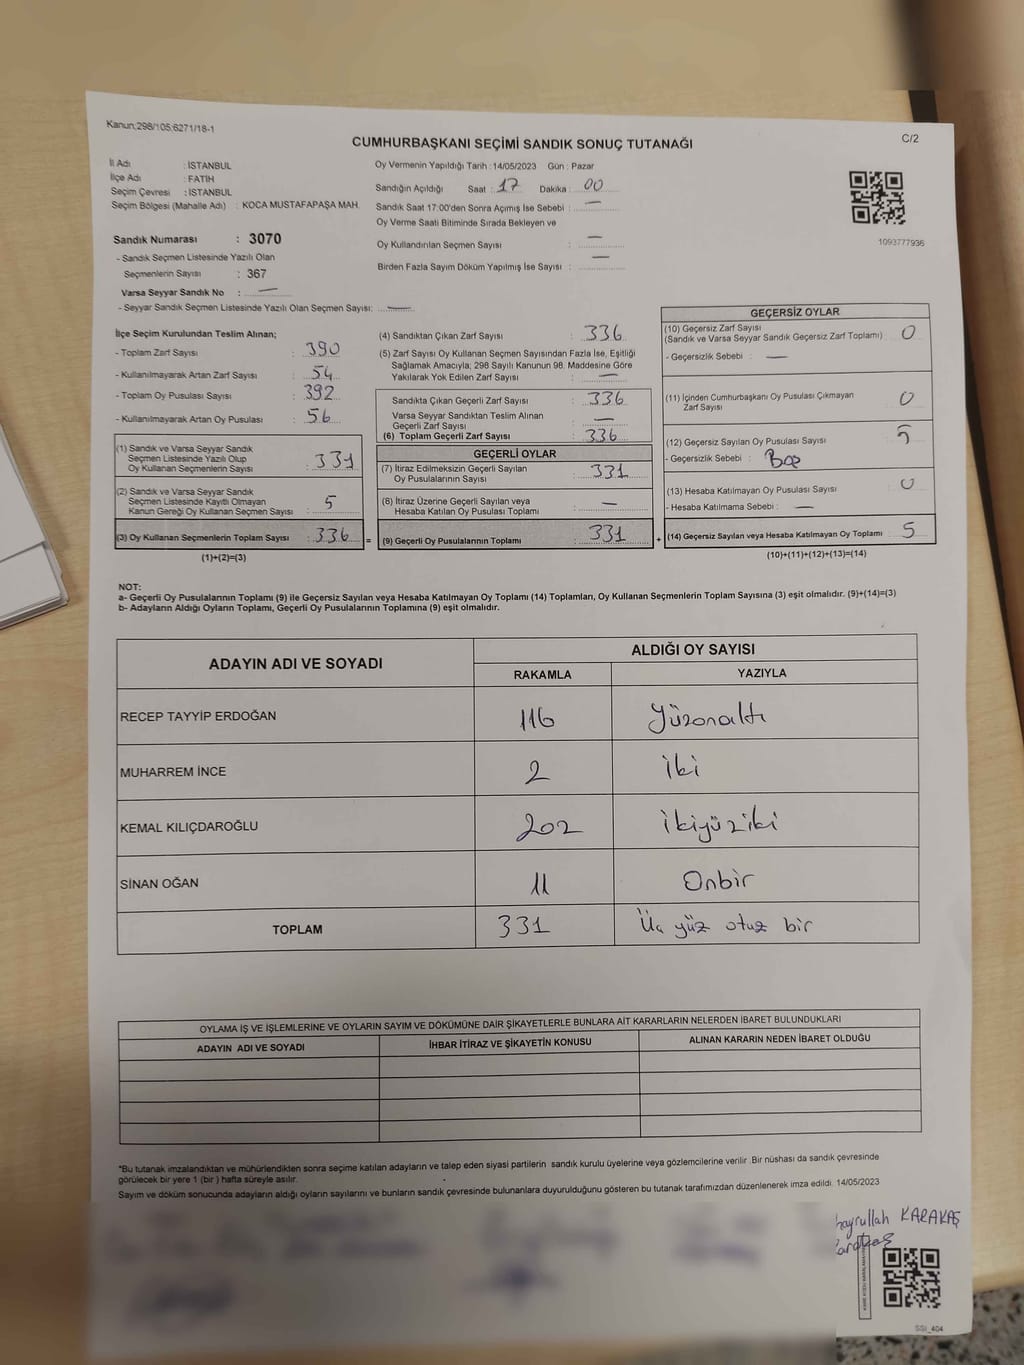 Kanun:298/105:6271/18-1
C/2
CUMHURBAŞKANI SEÇİMİ SANDIK SONUÇ TUTANAĞI
İl Adı : İSTANBUL
İlçe Adı : FATİH
Seçim Çevresi : İSTANBUL
Seçim Bölgesi (Mahalle Adı) : KOCA MUSTAFAPAŞA MAH.
Sandık Numarası : 3070
- Sandık Seçmen Listesinde Yazılı Olan
Seçmenlerin Sayısı : 367
Varsa Seyyar Sandık No : —
- Seyyar Sandık Seçmen Listesinde Yazılı Olan Seçmen Sayısı: —
Oy Vermenin Yapıldığı Tarih :14/05/2023 Gün : Pazar
Sandığın Açıldığı Saat : 17 Dakika : 00
Sandık Saat 17:00'den Sonra Açımış İse Sebebi : —
Oy Verme Saati Bitiminde Sırada Bekleyen ve
Oy Kullandırılan Seçmen Sayısı : —
Birden Fazla Sayım Döküm Yapılmış İse Sayısı : —
1093777936
İlçe Seçim Kurulundan Teslim Alınan;
- Toplam Zarf Sayısı : 390
- Kullanılmayarak Artan Zarf Sayısı : 54
- Toplam Oy Pusulası Sayısı : 392
- Kullanılmayarak Artan Oy Pusulası : 56
(1) Sandık ve Varsa Seyyar Sandık
Seçmen Listesinde Yazılı Olup
Oy Kullanan Seçmenlerin Sayısı : 331
(2) Sandık ve Varsa Seyyar Sandık
Seçmen Listesinde Kayıtlı Olmayan
Kanun Gereği Oy Kullanan Seçmen Sayısı : 5
(3) Oy Kullanan Seçmenlerin Toplam Sayısı : 336
(1)+(2)=(3)
(4) Sandıktan Çıkan Zarf Sayısı : 336
(5) Zarf Sayısı Oy Kullanan Seçmen Sayısından Fazla İse, Eşitliği
Sağlamak Amacıyla; 298 Sayılı Kanunun 98. Maddesine Göre
Yakılarak Yok Edilen Zarf Sayısı : —
Sandıkta Çıkan Geçerli Zarf Sayısı : 336
Varsa Seyyar Sandıktan Teslim Alınan
Geçerli Zarf Sayısı : —
(6) Toplam Geçerli Zarf Sayısı : 336
GEÇERLİ OYLAR
(7) İtiraz Edilmeksizin Geçerli Sayılan
Oy Pusulalarının Sayısı : 331
(8) İtiraz Üzerine Geçerli Sayılan veya
Hesaba Katılan Oy Pusulası Toplamı : —
= (9) Geçerli Oy Pusulalarının Toplamı : 331 +
GEÇERSİZ OYLAR
(10) Geçersiz Zarf Sayısı
(Sandık ve Varsa Seyyar Sandık Geçersiz Zarf Toplamı) : 0
- Geçersizlik Sebebi : —
(11) İçinden Cumhurbaşkanı Oy Pusulası Çıkmayan
Zarf Sayısı : 0
(12) Geçersiz Sayılan Oy Pusulası Sayısı : 5
- Geçersizlik Sebebi : Boş
(13) Hesaba Katılmayan Oy Pusulası Sayısı : 0
- Hesaba Katılmama Sebebi : —
(14) Geçersiz Sayılan veya Hesaba Katılmayan Oy Toplamı : 5
(10)+(11)+(12)+(13)=(14)
NOT:
a- Geçerli Oy Pusulalarının Toplamı (9) ile Geçersiz Sayılan veya Hesaba Katılmayan Oy Toplamı (14) Toplamları, Oy Kullanan Seçmenlerin Toplam Sayısına (3) eşit olmalıdır. (9)+(14)=(3)
b- Adayların Aldığı Oyların Toplamı, Geçerli Oy Pusulalarının Toplamına (9) eşit olmalıdır.
ADAYIN ADI VE SOYADI ALDIĞI OY SAYISI
RAKAMLA YAZIYLA
RECEP TAYYİP ERDOĞAN 116 Yüzonaltı
MUHARREM İNCE 2 İki
KEMAL KILIÇDAROĞLU 202 İkiyüziki
SİNAN OĞAN 11 Onbir
TOPLAM 331 Üç yüz otuz bir
OYLAMA İŞ VE İŞLEMLERİNE VE OYLARIN SAYIM VE DÖKÜMÜNE DAİR ŞİKAYETLERLE BUNLARA AİT KARARLARIN NELERDEN İBARET BULUNDUKLARI
ADAYIN ADI VE SOYADI İHBAR İTİRAZ VE ŞİKAYETİN KONUSU ALINAN KARARIN NEDEN İBARET OLDUĞU
*Bu tutanak imzalandıktan ve mühürlendikten sonra seçime katılan adayların ve talep eden siyasi partilerin sandık kurulu üyelerine veya gözlemcilerine verilir .Bir nüshası da sandık çevresinde
görülecek bir yere 1 (bir ) hafta süreyle asılır.
Sayım ve döküm sonucunda adayların aldığı oyların sayılarını ve bunların sandık çevresinde bulunanlara duyurulduğunu gösteren bu tutanak tarafımızdan düzenlenerek imza edildi. 14/05/2023
hayrullah KARAKAŞ
SSI_404